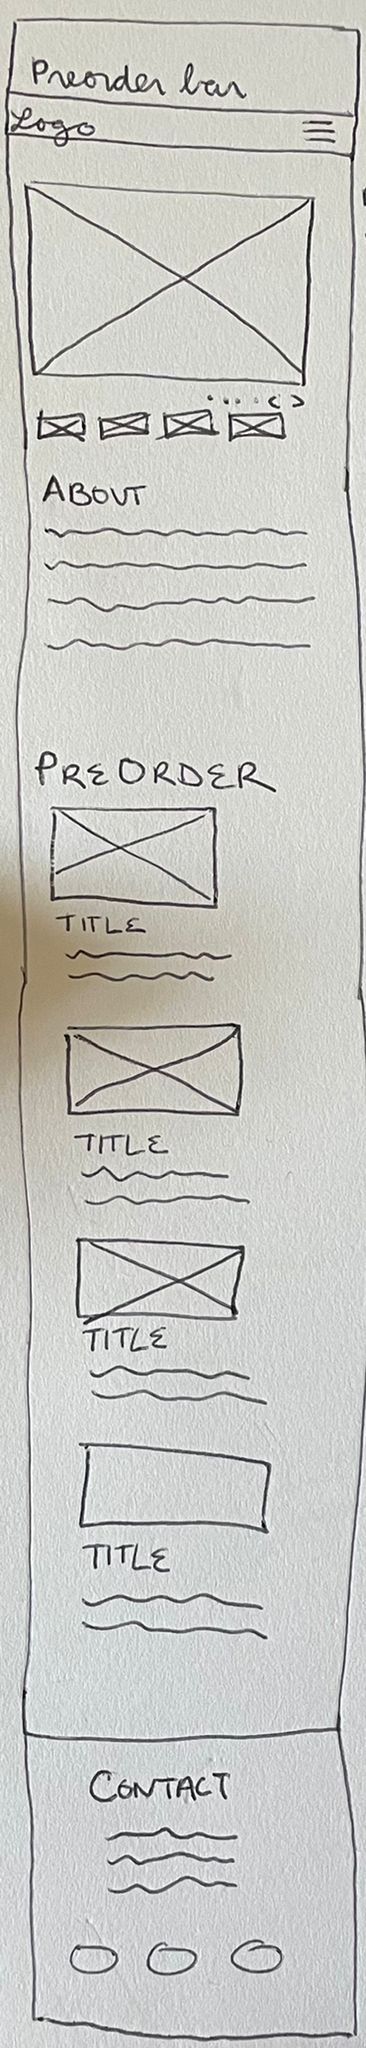 Preorder bar
Logo
ABOUT
PREORDER
TITLE
TITLE
TITLE
TITLE
CONTACT